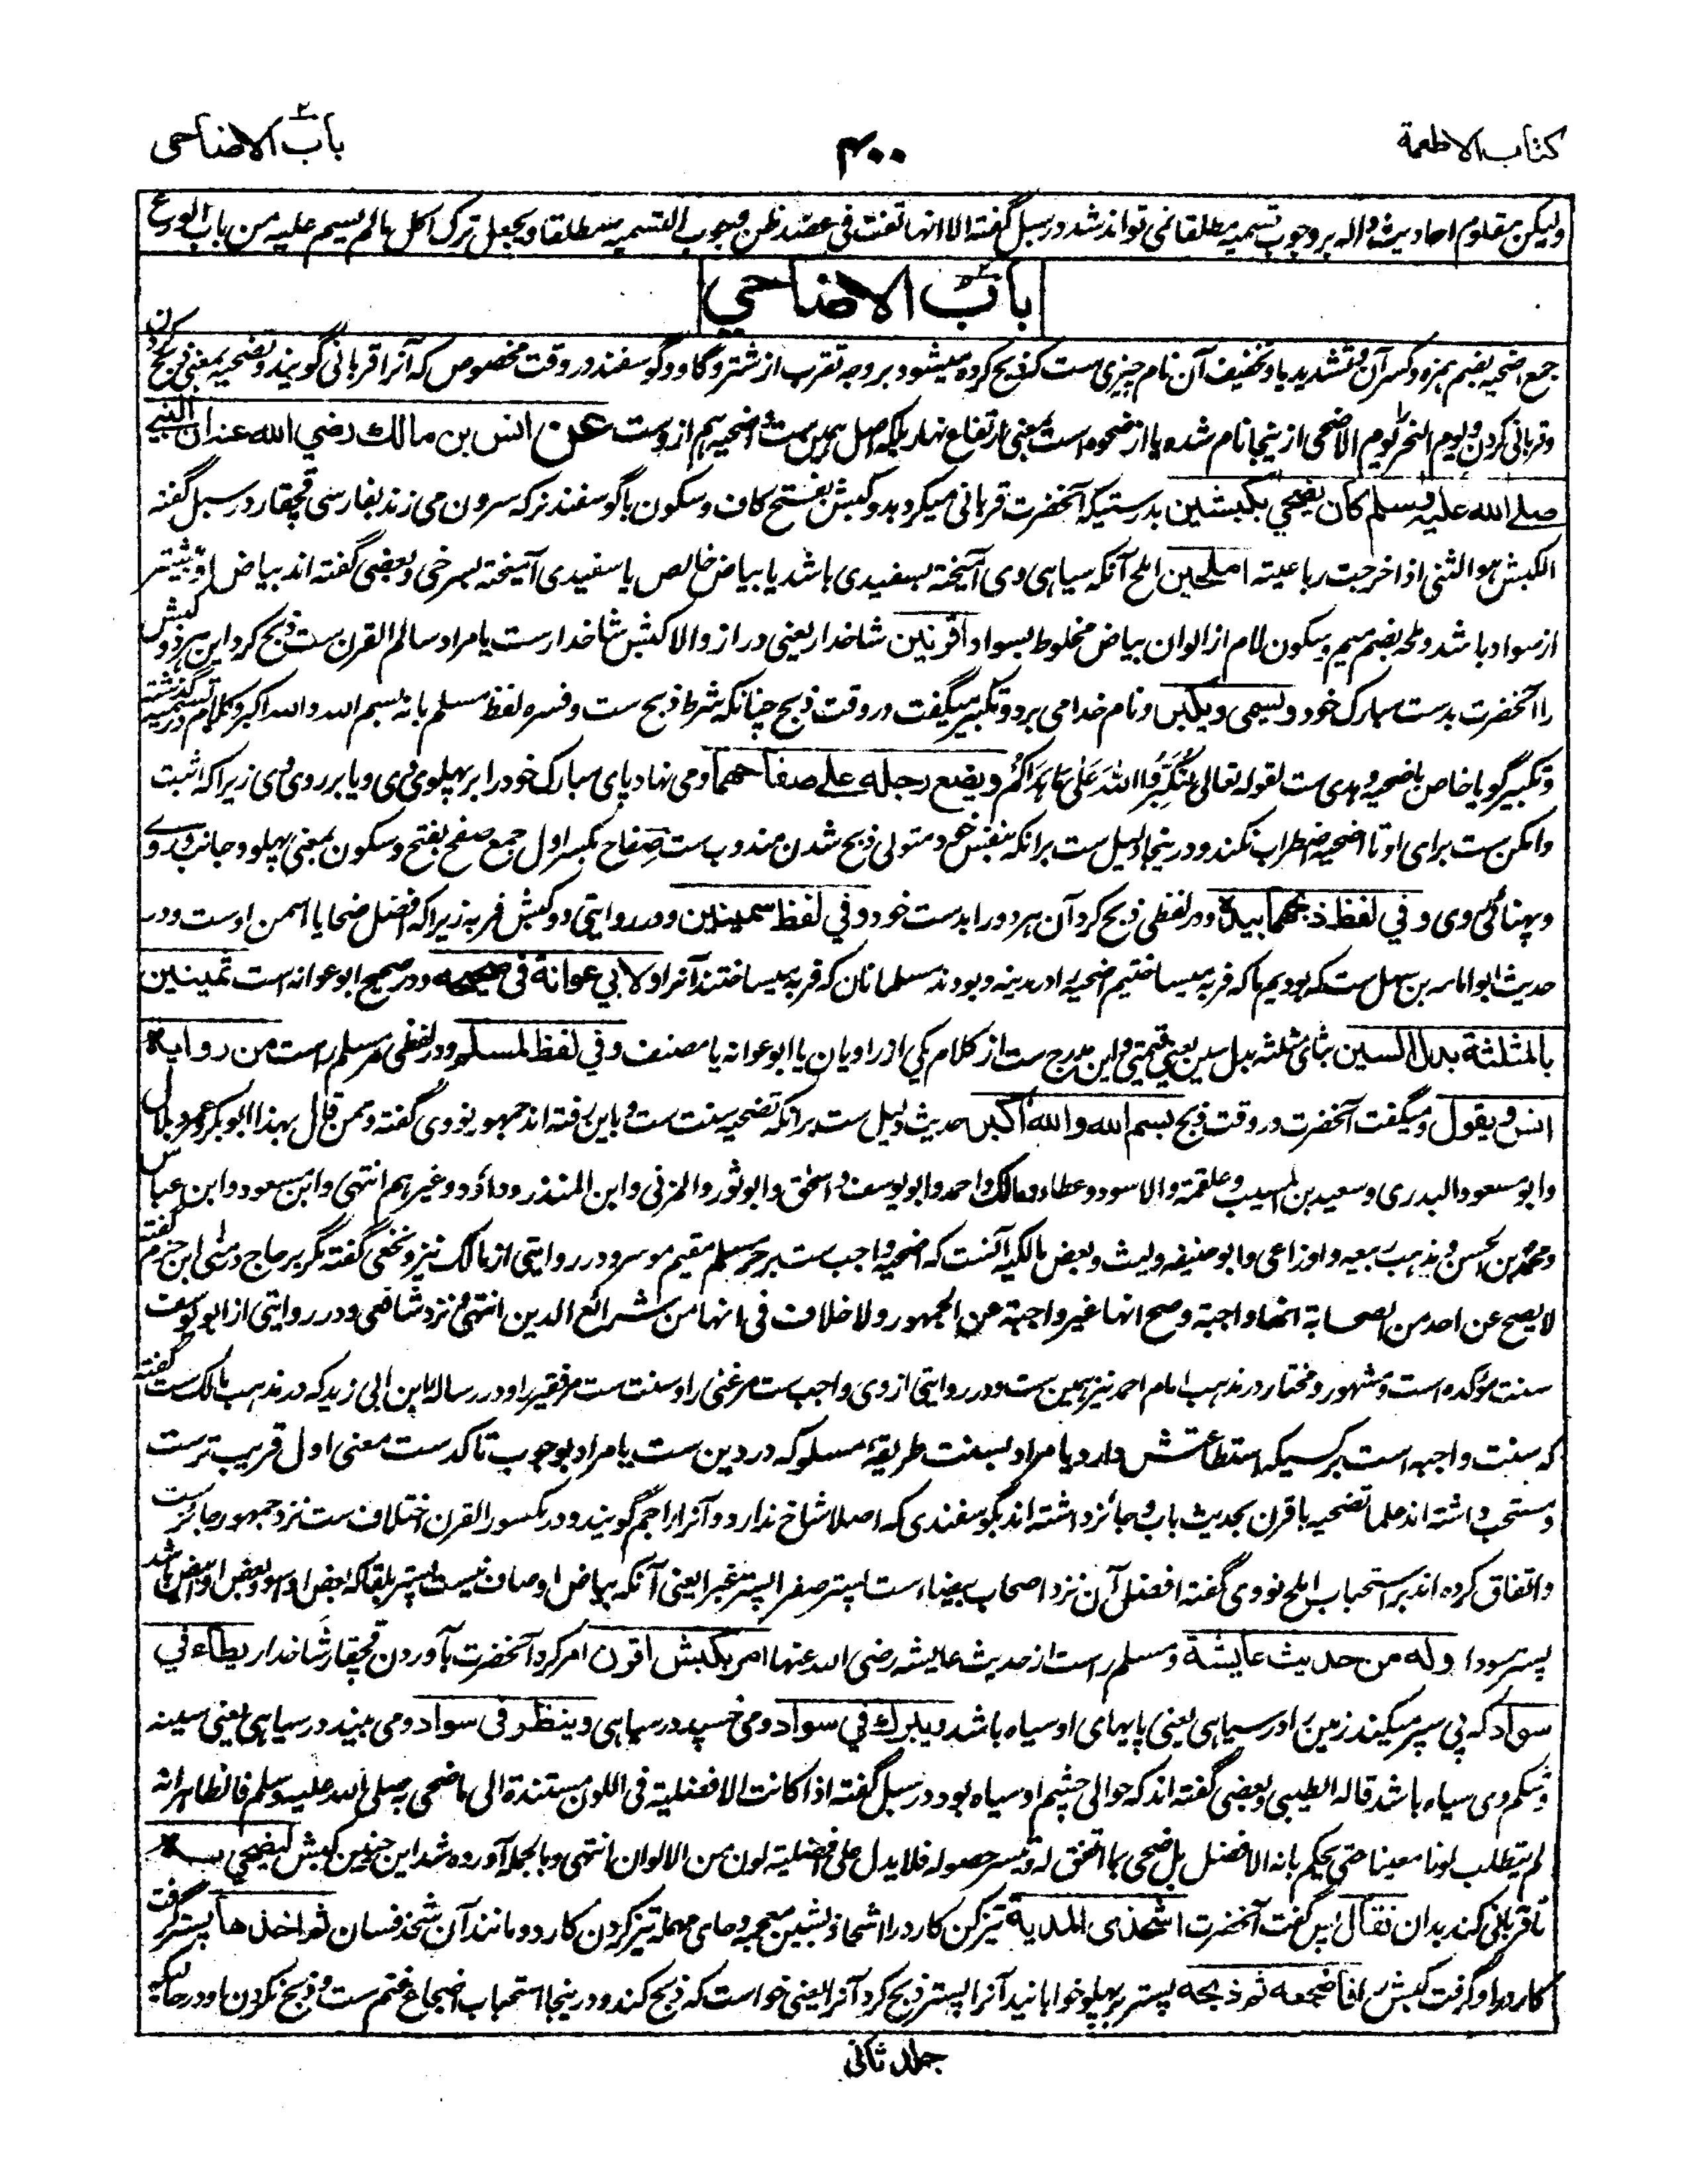 كتاب الاطعمة
۴۰۰
باب الاضاحی
ولیکن مقاوم احادیث داله بر وجوب تسمیه مطلقا نمی تواند شد در سبل گفته الا انها تفت فی عضد ظن وجوب التسمیه مطلقا و یجعل ترک اکل مالم یسم علیه من باب الورع
باب الاضاحي
جمع اضحیه بضم همزه و کسر آن و تشدید یا و تخفیف آن نام چیزی ست که ذبح کرده میشود بر وجه تقرب از شتر و گاو و گوسفند در وقت مخصوص که آنرا قربانی گویند و تضحیه بمعنی ذبح کردن
و قربانی کردن و یوم النحر را یوم الاضحی ازینجا نام شده یا از ضحوه است بمعنی ارتفاع نهار بلکه اصل همین ست و اضحیه هم ازوست عن انس بن مالك رضي الله عنه ان النبي
صلى الله عليه وسلم كان يضحي بكبشين بدرستیکه آنحضرت قربانی میکرد بدو کبش بفتح کاف و سکون با گوسفند نر که سرون می زند بفارسی قچقار در سبل گفته
الکبش هو الثنی اذا خرجت رباعیته املحين املح آنکه سیاهی وی آمیخته بسفیدی باشد یا بیاض خالص یا سفیدی آمیخته بسرخی و بعضی گفته اند بیاض او بیشتر
از سواد باشد و ملحه بضم میم و سکون لام از الوان بیاض مخلوط بسواد اقرنين شاخدار یعنی دراز و الا کبش شاخدارست یا مراد سالم القرن ست ذبح کرد این هر دو کبش
را آنحضرت بدست مبارک خود ويسمي ويكبر و نام خدا می برد و تکبیر میگفت در وقت ذبح چنانکه شرط ذبح ست و فسره لفظ مسلم بانه بسم الله و الله اکبر و کلام در تسمیه گذشته
و تکبیر گویا خاص باضحیه و هدی ست لقوله تعالی لِتُكَبِّرُوا اللهَ عَلَى مَا هَدَاكُمْ ويضع رجله على صفاحهما و می نهاد پای مبارک خود را بر پهلوی وی و یا بر روی وی زیرا که اثبت
و امکن ست برای او تا اضحیه اضطراب نکند و درینجا دلیل ست برانکه بنفس خود متولی ذبح شدن مندوب ست صِفاح بکسر اول جمع صفح بفتح و سکون بمعنی پهلو و جانب و روے
و پهنائی وی وفي لفظ ذبحهما بيده و در لفظی ذبح کرد آن هر دو را بدست خود وفي لفظ سمينين و در روایتی دو کبش فربه زیرا که افضل ضحایا اسمن اوست و در
حدیث ابو امامه بن سهل ست که بودیم ما که فربه میساختیم اضحیه را در مدینه و بودند مسلمانان که فربه میساختند آنرا ولابي عوانة في صحيحه و در صحیح ابو عوانه است ثمينين
بالمثلثة بدل السين بثای مثلثه بدل سین یعنی قیمتی و این مدرج ست از کلام یکی از راویان یا ابو عوانه یا مصنف وفي لفظ لمسلم و در لفظی مر مسلم راست من رواية
انس ويقول و میگفت آنحضرت در وقت ذبح بسم الله والله اكبر حدیث دلیل ست برانکه تضحیه سنت ست و باین رفته اند جمهور نووی گفته و ممن قال بهذا ابو بکر و عمر و بلال
و ابو مسعود البدری و سعید بن المسیب و علقمة و الاسود و عطاء و مالک و احمد و ابو یوسف و اسحٰق و ابو ثور و المزنی و ابن المنذر و داؤد و غیرهم انتهی و ابن مسعود و ابن عباس
و محمد بن الحسن و مذهب ربیعه و اوزاعی و ابو حنیفه و لیث و بعض مالکیه آنست که اضحیه واجب ست بر حر مسلم مقیم موسر و در روایتی از مالک نیز و نخعی گفته مگر بر حاج در منٰی ابن حزم گفته
لا یصح عن احد من الصحابة انها واجبة و صح انها غیر واجبة عن الجمهور و لا خلاف فی انها من شرائع الدین انتهی و نزد شافعی و در روایتی از ابو یوسف
سنت مؤکده است و مشهور و مختار در مذهب امام احمد نیز همین ست و در روایتی از وی واجب ست مر غنی را و سنت ست مر فقیر را و در رساله ابن ابی زید که در مذهب مالک ست گفته
که سنت واجبه است بر کسیکه استطاعتش دارد یا مراد بسنت طریقهٔ مسلوکه در دین ست یا مراد بوجوب تاکدست معنی اول قریب ترست
و مستحب داشته اند علما تضحیه باقرن بحدیث باب و جائز داشته اند بگوسفندی که اصلا شاخ ندارد و آنرا اجم گویند و در مکسور القرن اختلاف ست نزد جمهور جائزست
و اتفاق کرده اند بر استحباب املح نووی گفته افضل آن نزد اصحاب بیضاءست پستر صفرا پستر غبرا یعنی آنکه بیاض او صاف نیست پستر بلقا که بعض او اسود و بعض او ابیض باشد
پستر سودا وله من حديث عايشة و مسلم راست از حدیث عایشه رضی الله عنها امر بكبش اقرن امر کرد آنحضرت بآوردن قچقار شاخدار يطاء في
سواد که پی سپر میکند زمین را در سیاهی یعنی پایهای او سیاه باشد ويبرك في سواد و می خسپد در سیاهی وينظر في سواد و می بیند در سیاهی یعنی سینه
و شکم وی سیاه باشد قاله الطیبی و بعضی گفته اند که حوالی چشم او سیاه بود در سبل گفته اذا کانت الافضلیة فی اللون مستندة الی ما ضحی به صلی الله علیه وسلم فالظاهر انه
لم یتطلب لونا معینا حتی یحکم بانه الافضل بل ضحی بما اتفق له و تیسر حصوله فلا یدل علی افضلیة لون من الالوان انتهی و بالجمله آورده شد این چنین کبش ليضحي به
تا قربانی کند بدان فقال پس گفت آنحضرت اشحذي المدية تیز کن کارد را اشحاذ بشین معجمه و حای مهمله تیز کردن کارد و مانند آن شحذ فسان ثم اخذها پستر گرفت
کارد را و گرفت کبش را فاضجعه ثم ذبحه پستر بر پهلو خوابانید آنرا پستر ذبح کرد آنرا یعنی خواست که ذبح کند و درینجا استحباب اضجاع غنم ست و ذبح نکردن او در حالیکه
جلد ثانی